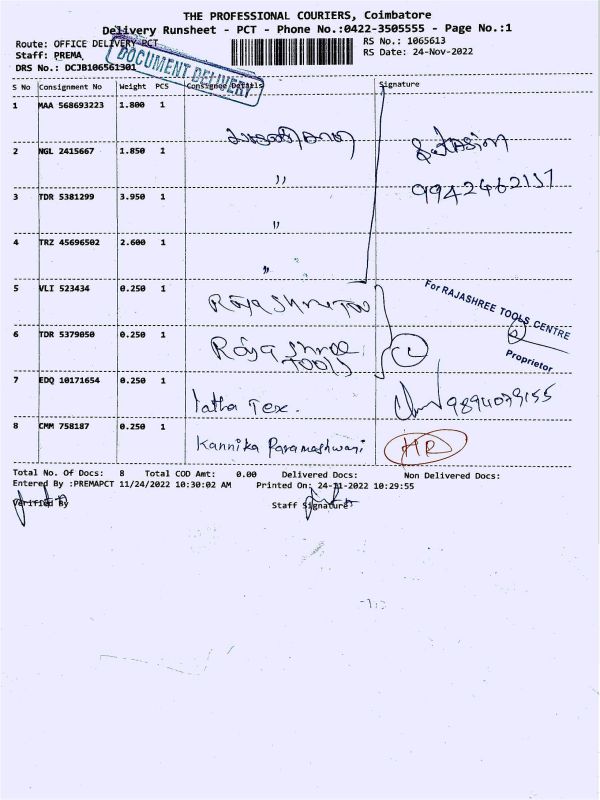 THE PROFESSIONAL COURIERS, Coimbatore
Delivery Runsheet - PCT - Phone No.:0422-3505555 - Page No.:1
Route: OFFICE DELIVERY-PCT
RS No.: 1065613
Staff: PREMA
RS Date: 24-Nov-2022
DRS No.: DCJB106561301
DOCUMENT DELIVERY
S No Consignment No Weight PCS Consignee Details Signature
1 MAA 568693223 1.800 1
2 NGL 2415667 1.850 1 "
9942462137
3 TDR 5381299 3.950 1 "
4 TRZ 45696502 2.600 1 "
5 VLI 523434 0.250 1
For RAJASHREE TOOLS CENTRE
Proprietor
6 TDR 5379050 0.250 1 Raja Shree TOOLS
7 EDQ 10171654 0.250 1 latha Tex. 9894039155
8 CMM 758187 0.250 1 Kannika Parameshwari HR
Total No. Of Docs: 8 Total COD Amt: 0.00 Delivered Docs: Non Delivered Docs:
Entered By :PREMAPCT 11/24/2022 10:30:02 AM Printed On: 24-11-2022 10:29:55
Verified By Staff Signature